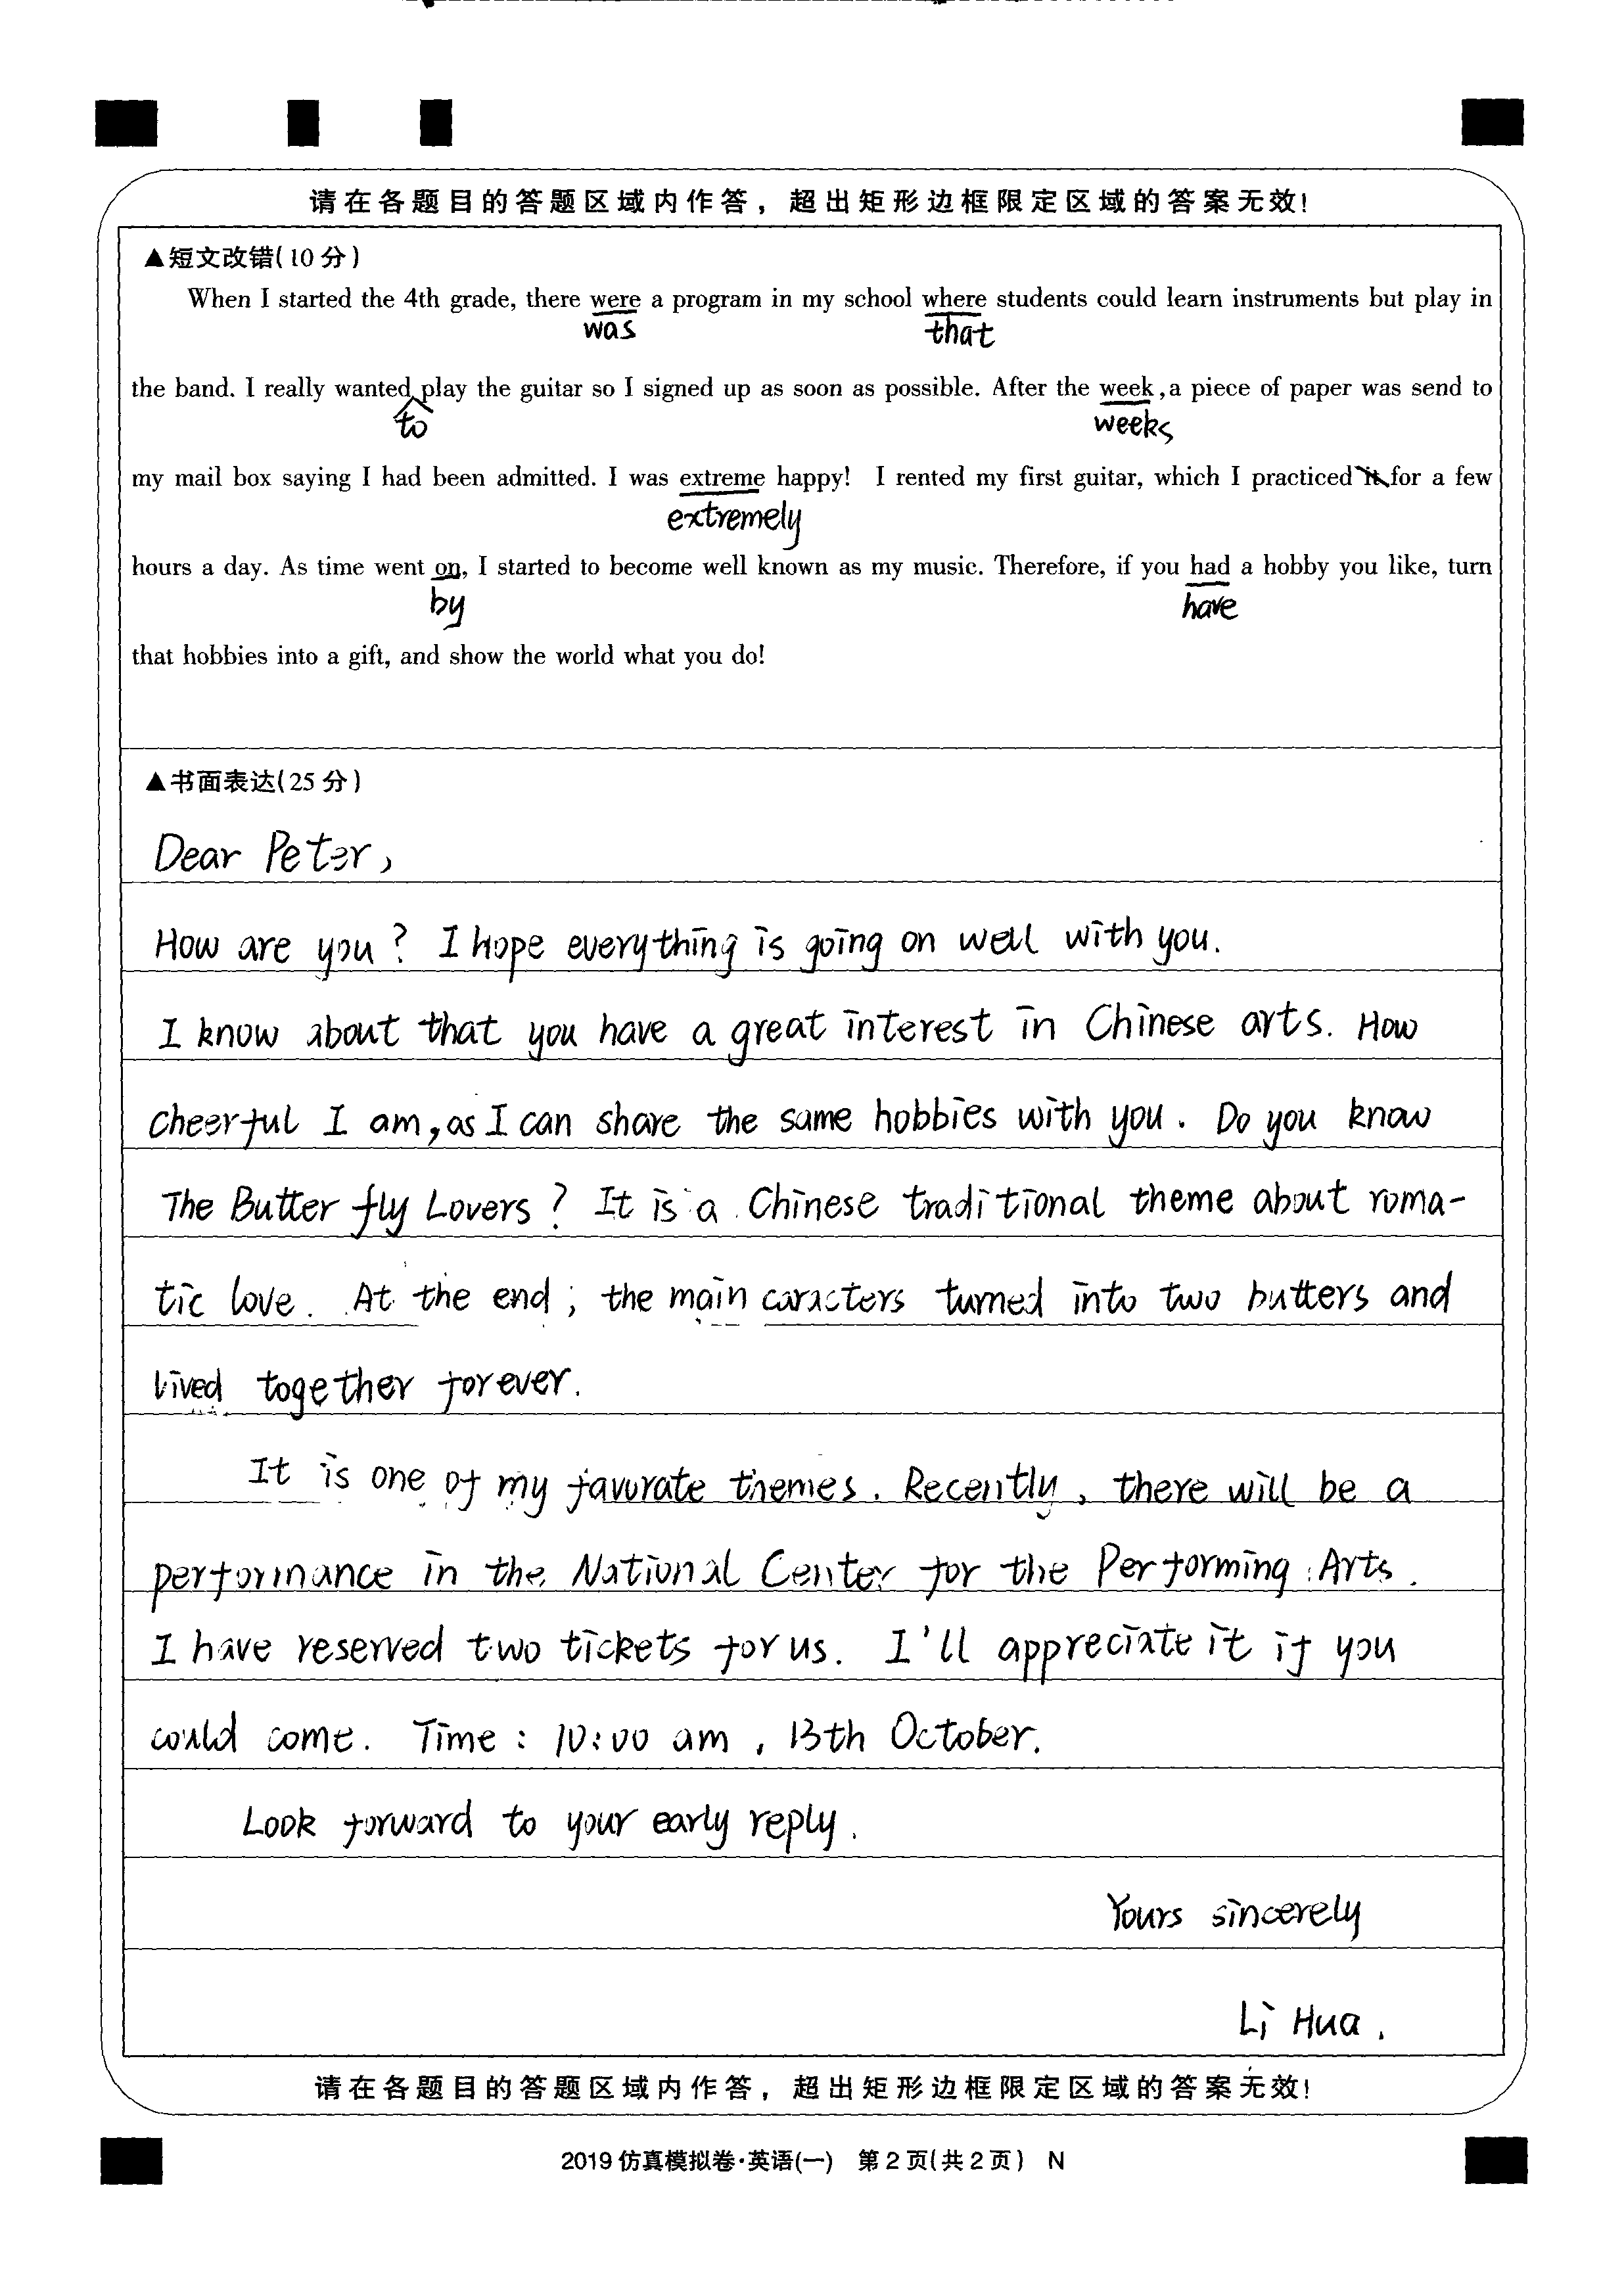 请在各题目的答题区域内作答，超出矩形边框限定区域的答案无效!
▲短文改错(10分)
When I started the 4th grade, there were a program in my school where students could learn instruments but play in
was that
the band. I really wanted play the guitar so I signed up as soon as possible. After the week, a piece of paper was send to
to weeks
my mail box saying I had been admitted. I was extreme happy! I rented my first guitar, which I practiced it for a few
extremely
hours a day. As time went on, I started to become well known as my music. Therefore, if you had a hobby you like, turn
by have
that hobbies into a gift, and show the world what you do!
▲书面表达(25分)
Dear Peter,
How are you? I hope everything is going on well with you.
I know about that you have a great interest in Chinese arts. How
cheerful I am, as I can share the same hobbies with you. Do you know
The Butter fly Lovers? It is a Chinese traditional theme about roma-
tic love. At the end, the main caracters turned into two butters and
lived together forever.
It is one of my favorate themes. Recently, there will be a
performance in the National Center for the Performing Arts.
I have reserved two tickets for us. I'll appreciate it if you
could come. Time: 10:00 am, 13th October.
Look forward to your early reply.
Yours sincerely
Li Hua.
请在各题目的答题区域内作答，超出矩形边框限定区域的答案无效!
2019仿真模拟卷·英语(一) 第2页(共2页) N